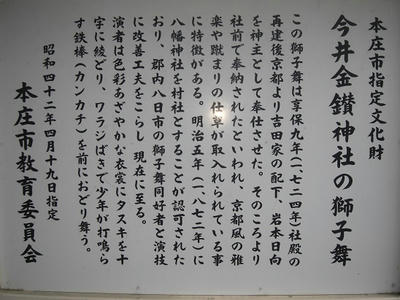 本庄市指定文化財
今井金鑚神社の獅子舞
この獅子舞は享保九年(一七二四年)社殿の
再建後京都より吉田家の配下、岩本日向
を神主として奉仕させた。そのころより
社前で奉納されたといわれ、京都風の雅
楽や蹴まりの仕草が取入れられている事
に特徴がある。明治五年(一八七二年)に
八幡神社を村社とすることが認可された
おり、郡内八日市の獅子舞同好者と演技
に改善工夫をこらし現在に至る。
演者は色彩あざやかな衣裳にタスキを十
字に綾どり、ワラジばきで少年が打鳴ら
す鉄棒(カンカチ)を前におどり舞う。
昭和四十二年四月十九日指定
本庄市教育委員会